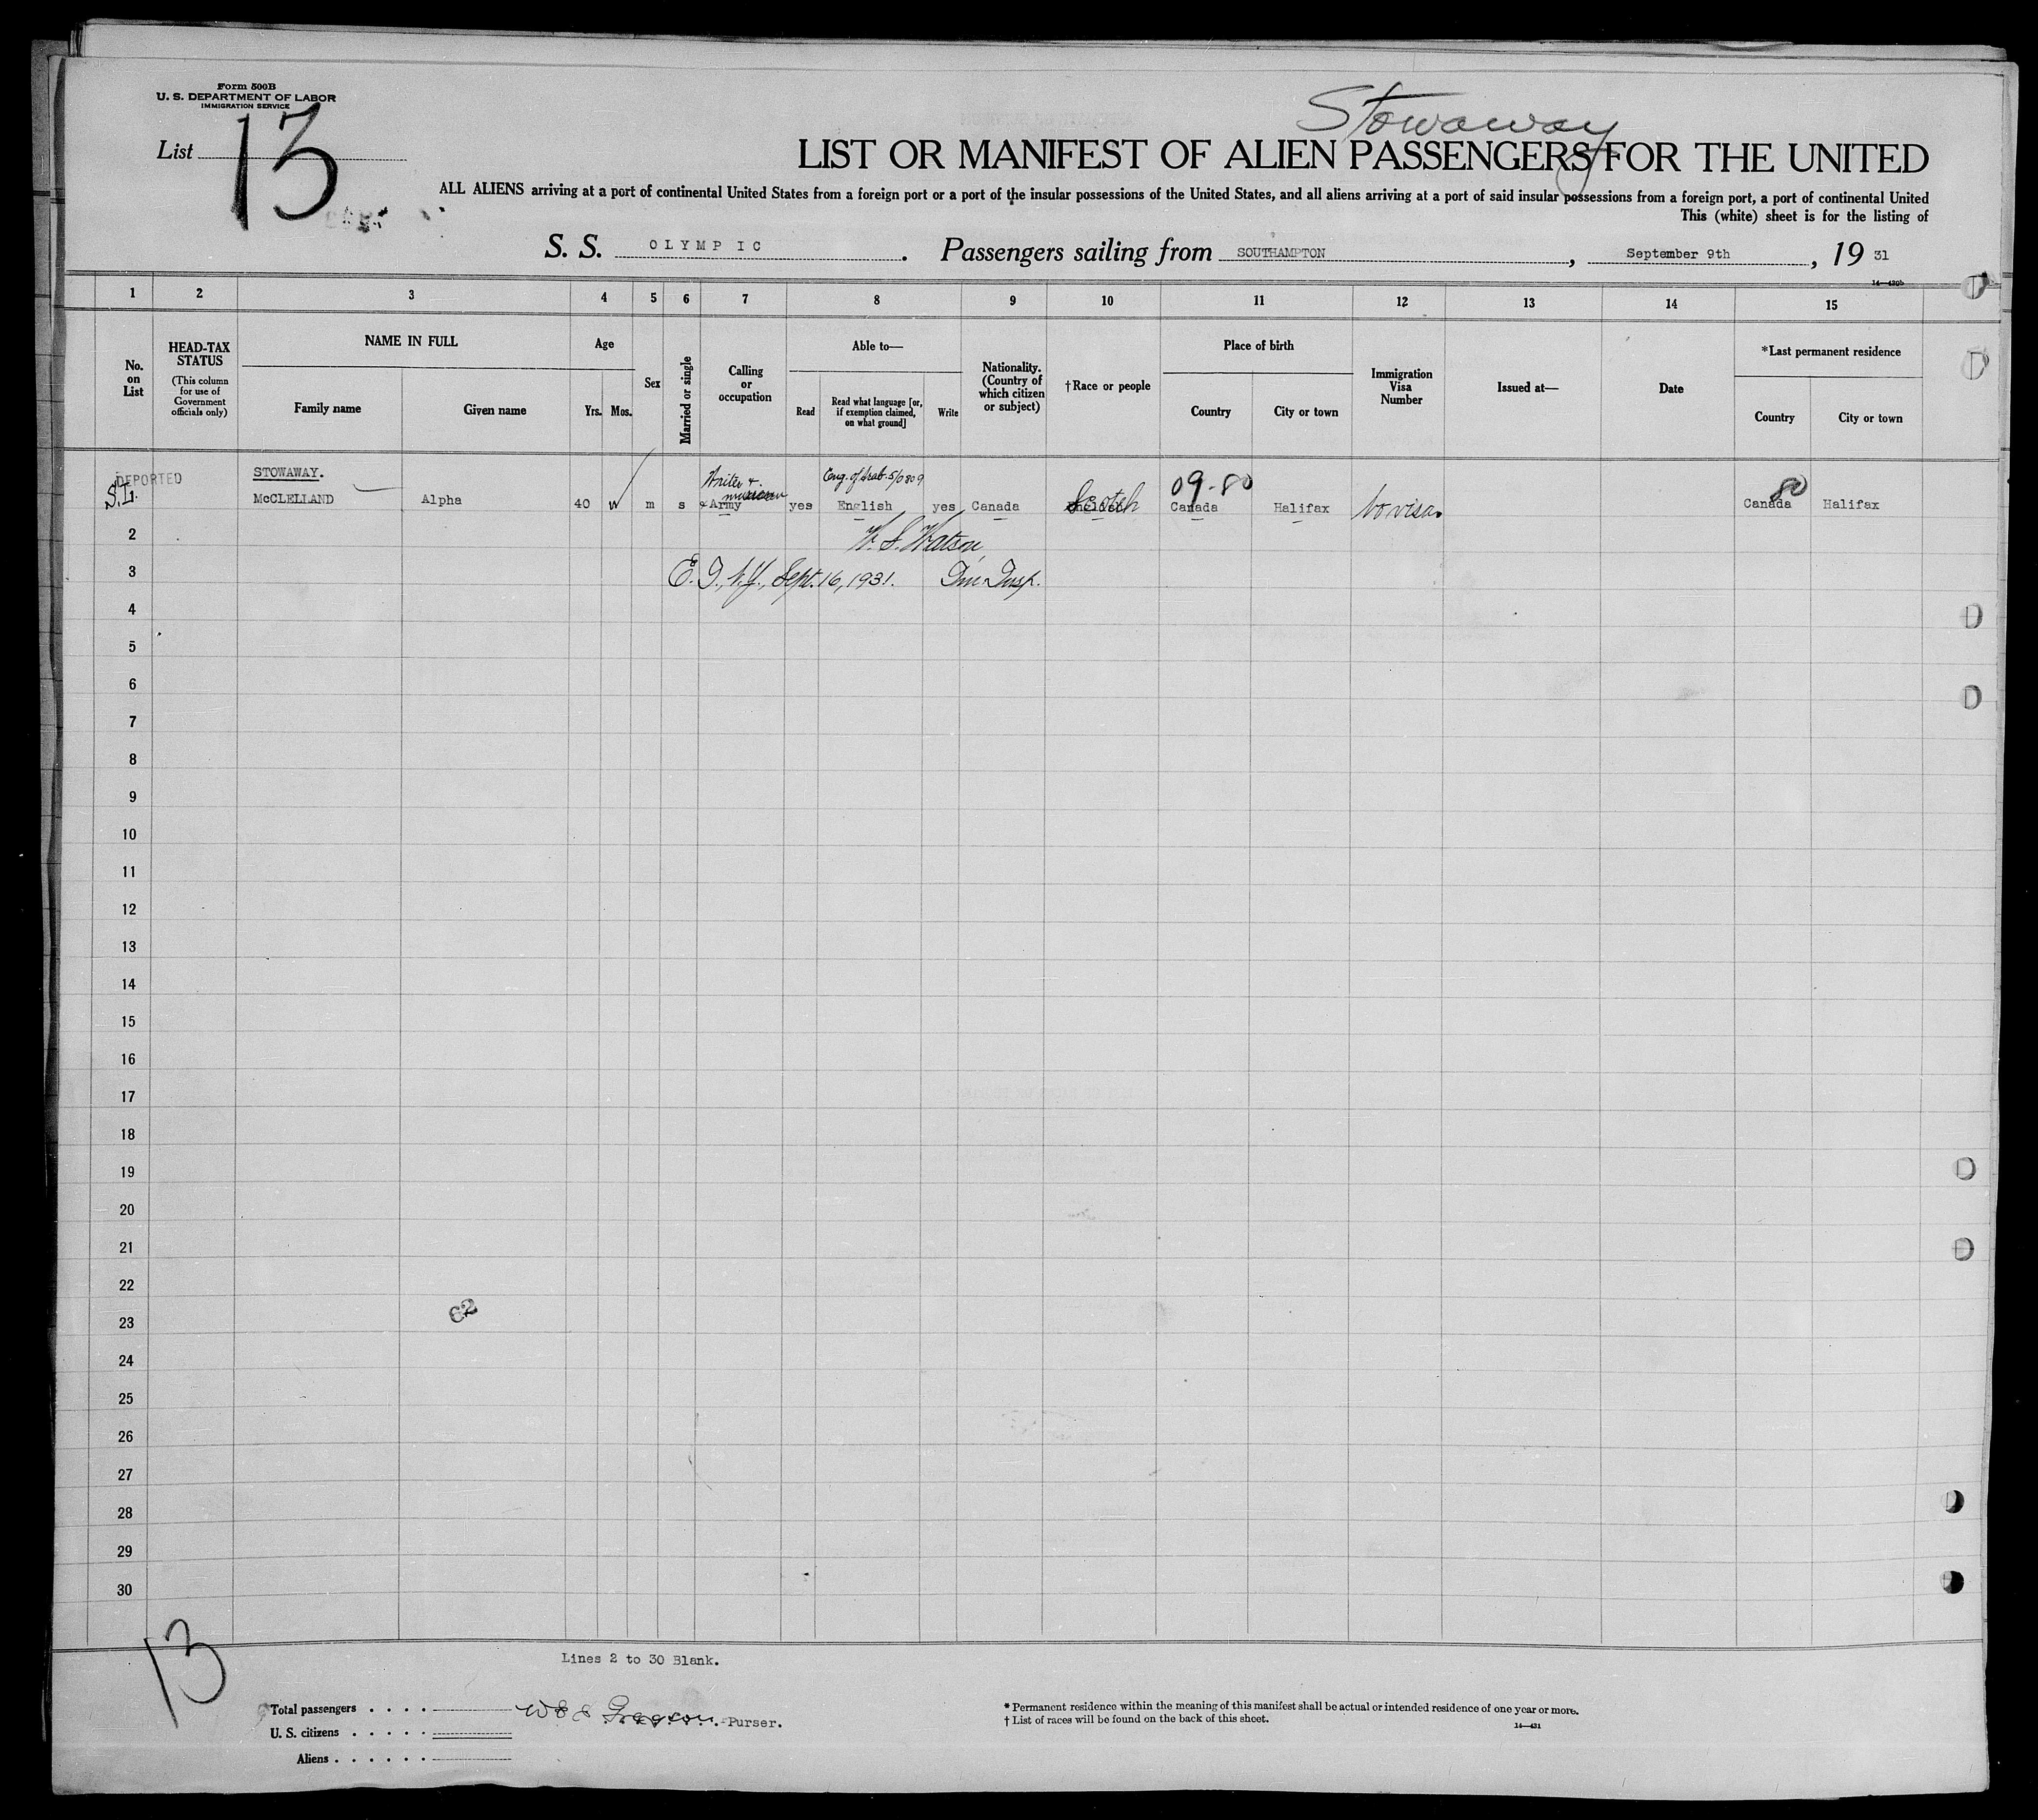 Form 500B
U. S. DEPARTMENT OF LABOR
IMMIGRATION SERVICE
List 13
Stowaway
LIST OR MANIFEST OF ALIEN PASSENGERS FOR THE UNITED
ALL ALIENS arriving at a port of continental United States from a foreign port or a port of the insular possessions of the United States, and all aliens arriving at a port of said insular possessions from a foreign port, a port of continental United
This (white) sheet is for the listing of
S. S. OLYMPIC. Passengers sailing from SOUTHAMPTON, September 9th, 19 31
14—430b
1 2 3 4 5 6 7 8 9 10 11 12 13 14 15
No. on List
HEAD-TAX STATUS
(This column for use of Government officials only)
NAME IN FULL
Family name
Given name
Age
Yrs. Mos.
Sex
Married or single
Calling or occupation
Able to—
Read
Read what language [or, if exemption claimed, on what ground]
Write
Nationality. (Country of which citizen or subject)
†Race or people
Place of birth
Country
City or town
Immigration Visa Number
Issued at—
Date
*Last permanent residence
Country
City or town
DEPORTED
S.I.
STOWAWAY.
Writer &
09-80
80
McCLELLAND Alpha 40 m s Army yes English yes Canada Scotch Canada Halifax No visa. Canada Halifax
2
W. S. Watson
3
E. I., N.Y., Sept. 16, 1931. Im. Insp.
4
5
6
7
8
9
10
11
12
13
14
15
16
17
18
19
20
21
22
23
62
24
25
26
27
28
29
30
13
Lines 2 to 30 Blank.
Total passengers . . . .
Purser.
U. S. citizens . . . . .
Aliens . . . . . .
* Permanent residence within the meaning of this manifest shall be actual or intended residence of one year or more.
† List of races will be found on the back of this sheet.
14—431